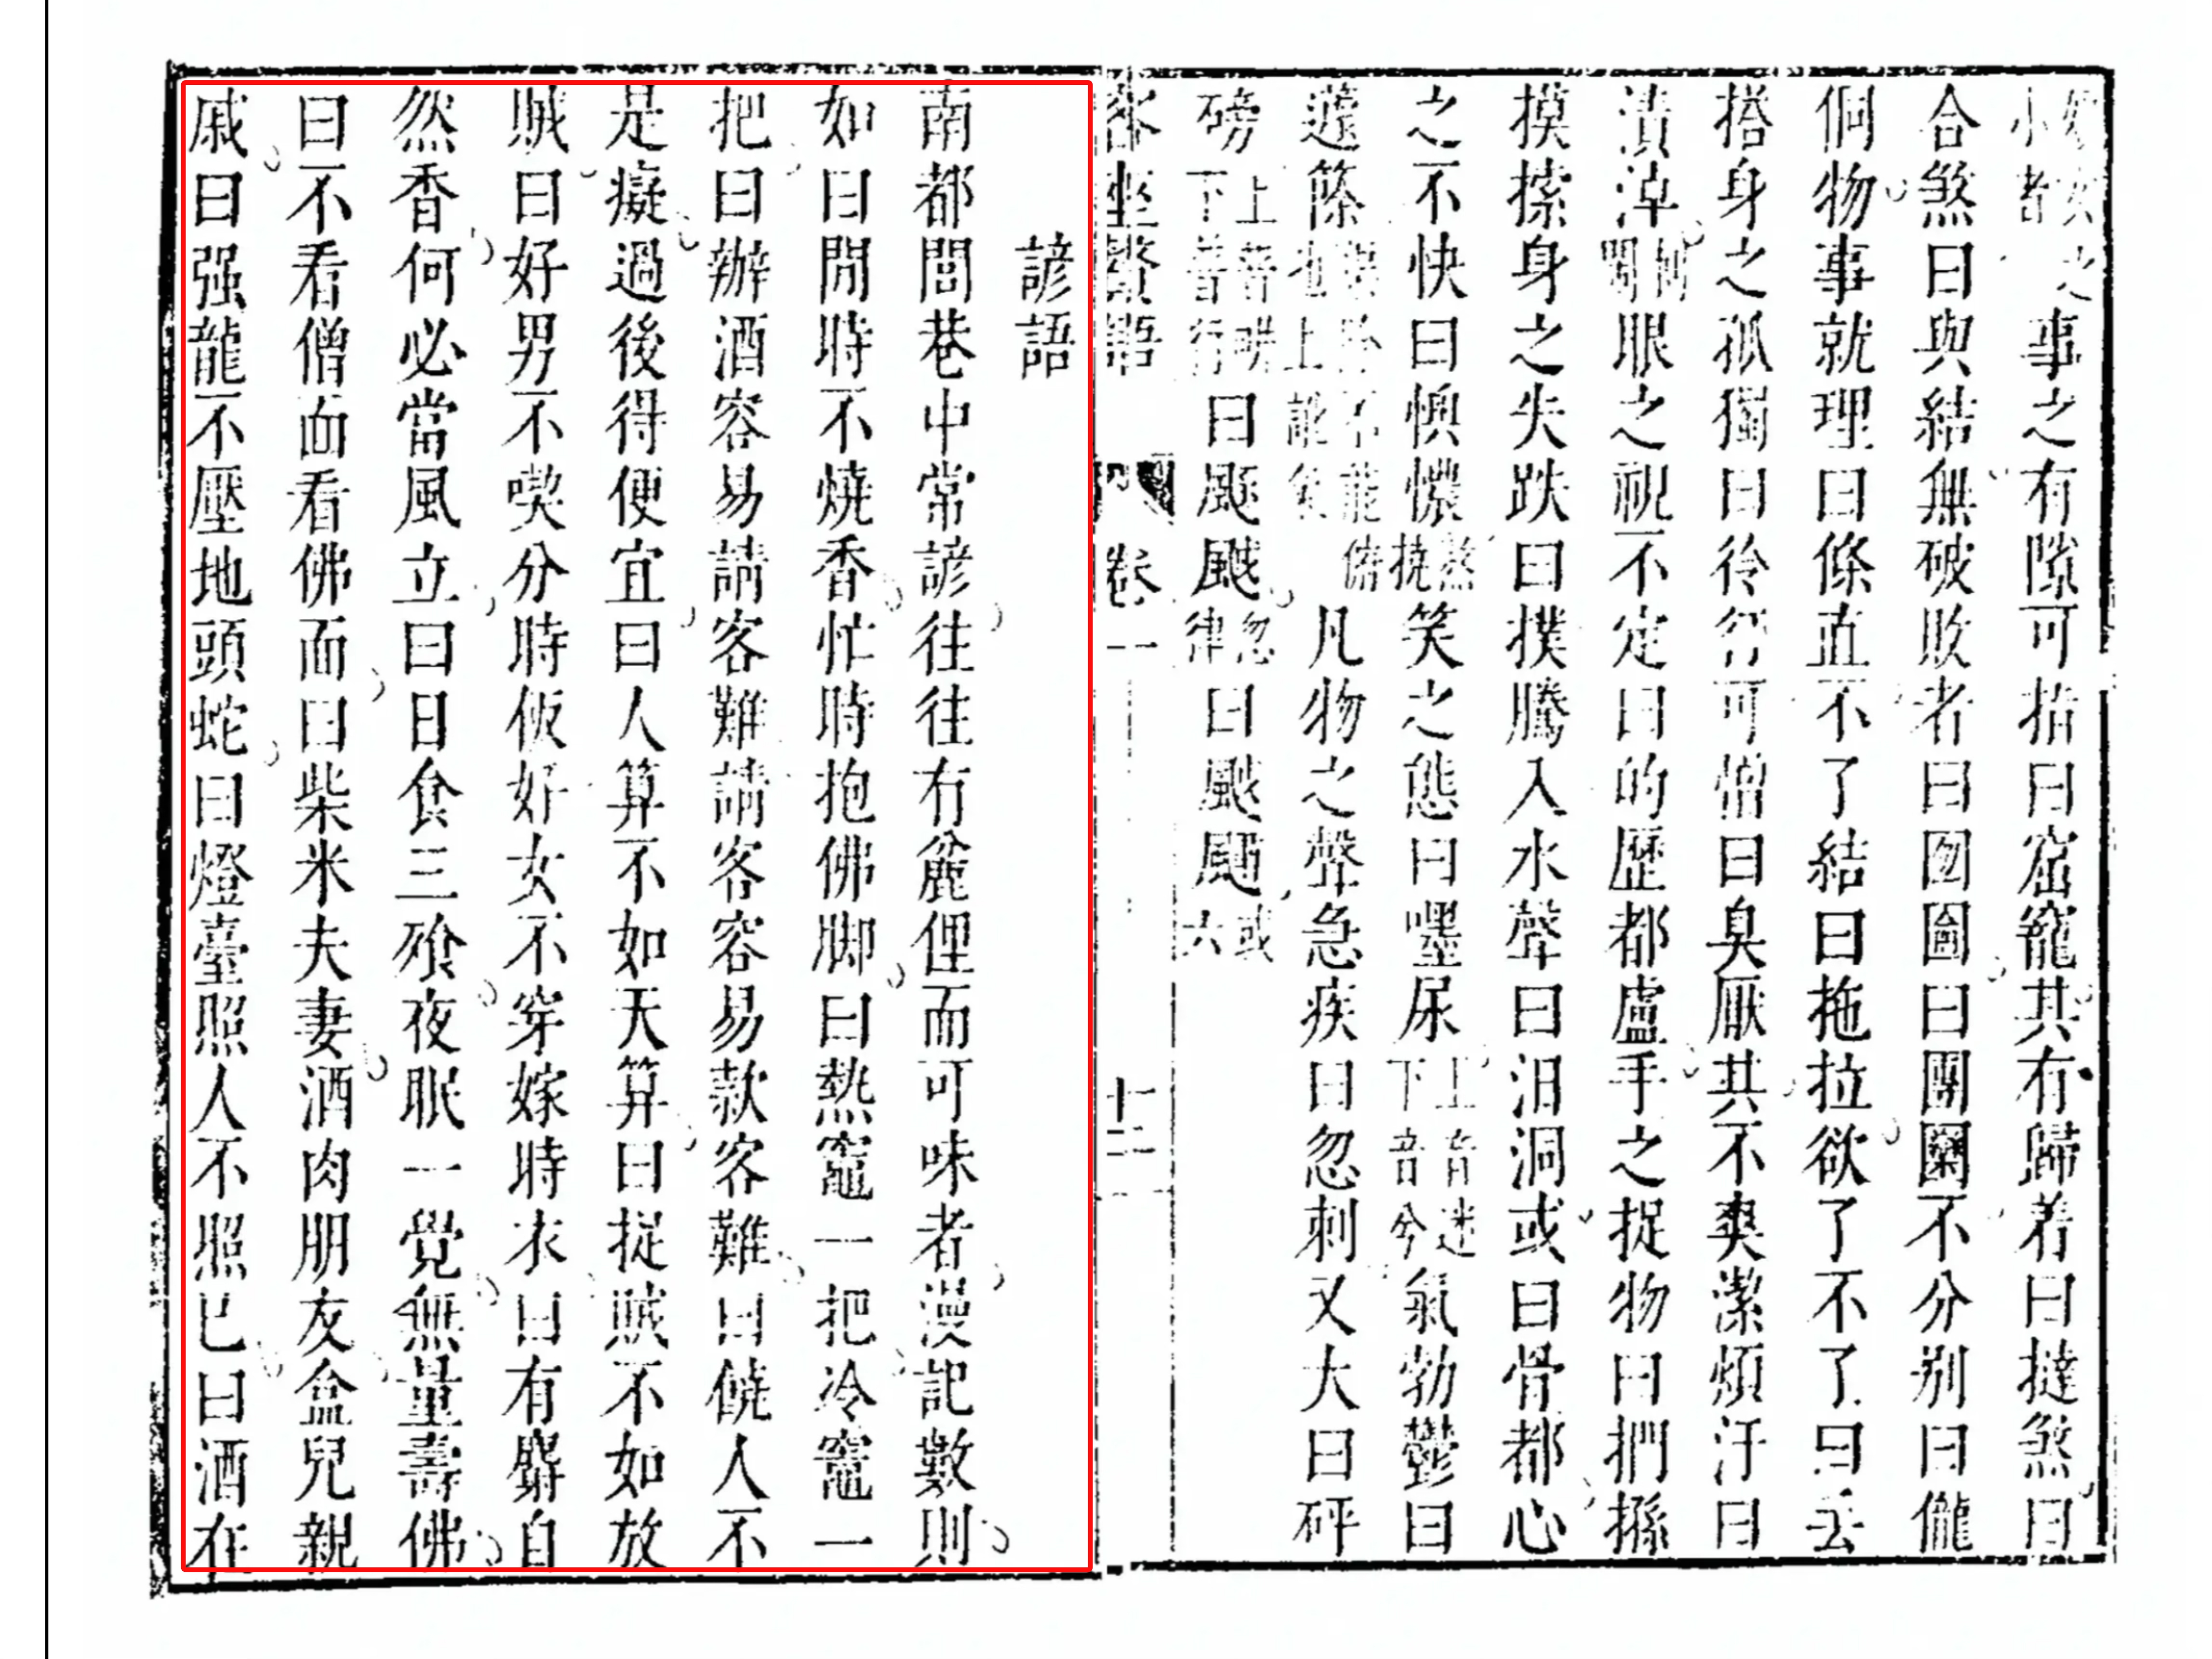 事之有隙可指曰窟窿其有歸着曰撻煞曰
合煞曰與結無破敗者曰囫圇曰團圞不分别曰儱
侗物事就理曰條直不了結曰拖拉欲了不了曰丢
搭身之孤獨曰伶仃可憎曰臭厭其不爽潔煩汙曰
漬淖眼之視不定曰的歷都盧手之捉物曰捫搎
摸搎身之失跌曰撲騰入水聲曰汨洞或曰骨都心
之不快曰懊憹笑之態曰嚜尿上音迷下音兮氣勃鬱曰
蘧篨凡物之聲急疾曰忽刺又大曰砰
磅曰忽律曰或六
客座贅語 卷一 十二
諺語
南都閭巷中常諺往往有麄俚而可味者漫記數則
如曰閒時不燒香忙時抱佛脚曰熱竈一把冷竈一
把曰辦酒容易請客難請客容易款客難曰饒人不
是癡過後得便宜曰人算不如天算曰捉賊不如放
賊曰好男不喫分時飯好女不穿嫁時衣曰有麝自
然香何必當風立曰日食三飱夜眠一覺無量壽佛
曰不看僧面看佛面曰柴米夫妻酒肉朋友盒兒親
戚曰强龍不壓地頭蛇曰燈臺照人不照己曰酒在